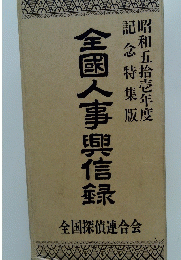 昭和五拾壱年度
記念特集版
全國人事興信録
全国探偵連合会